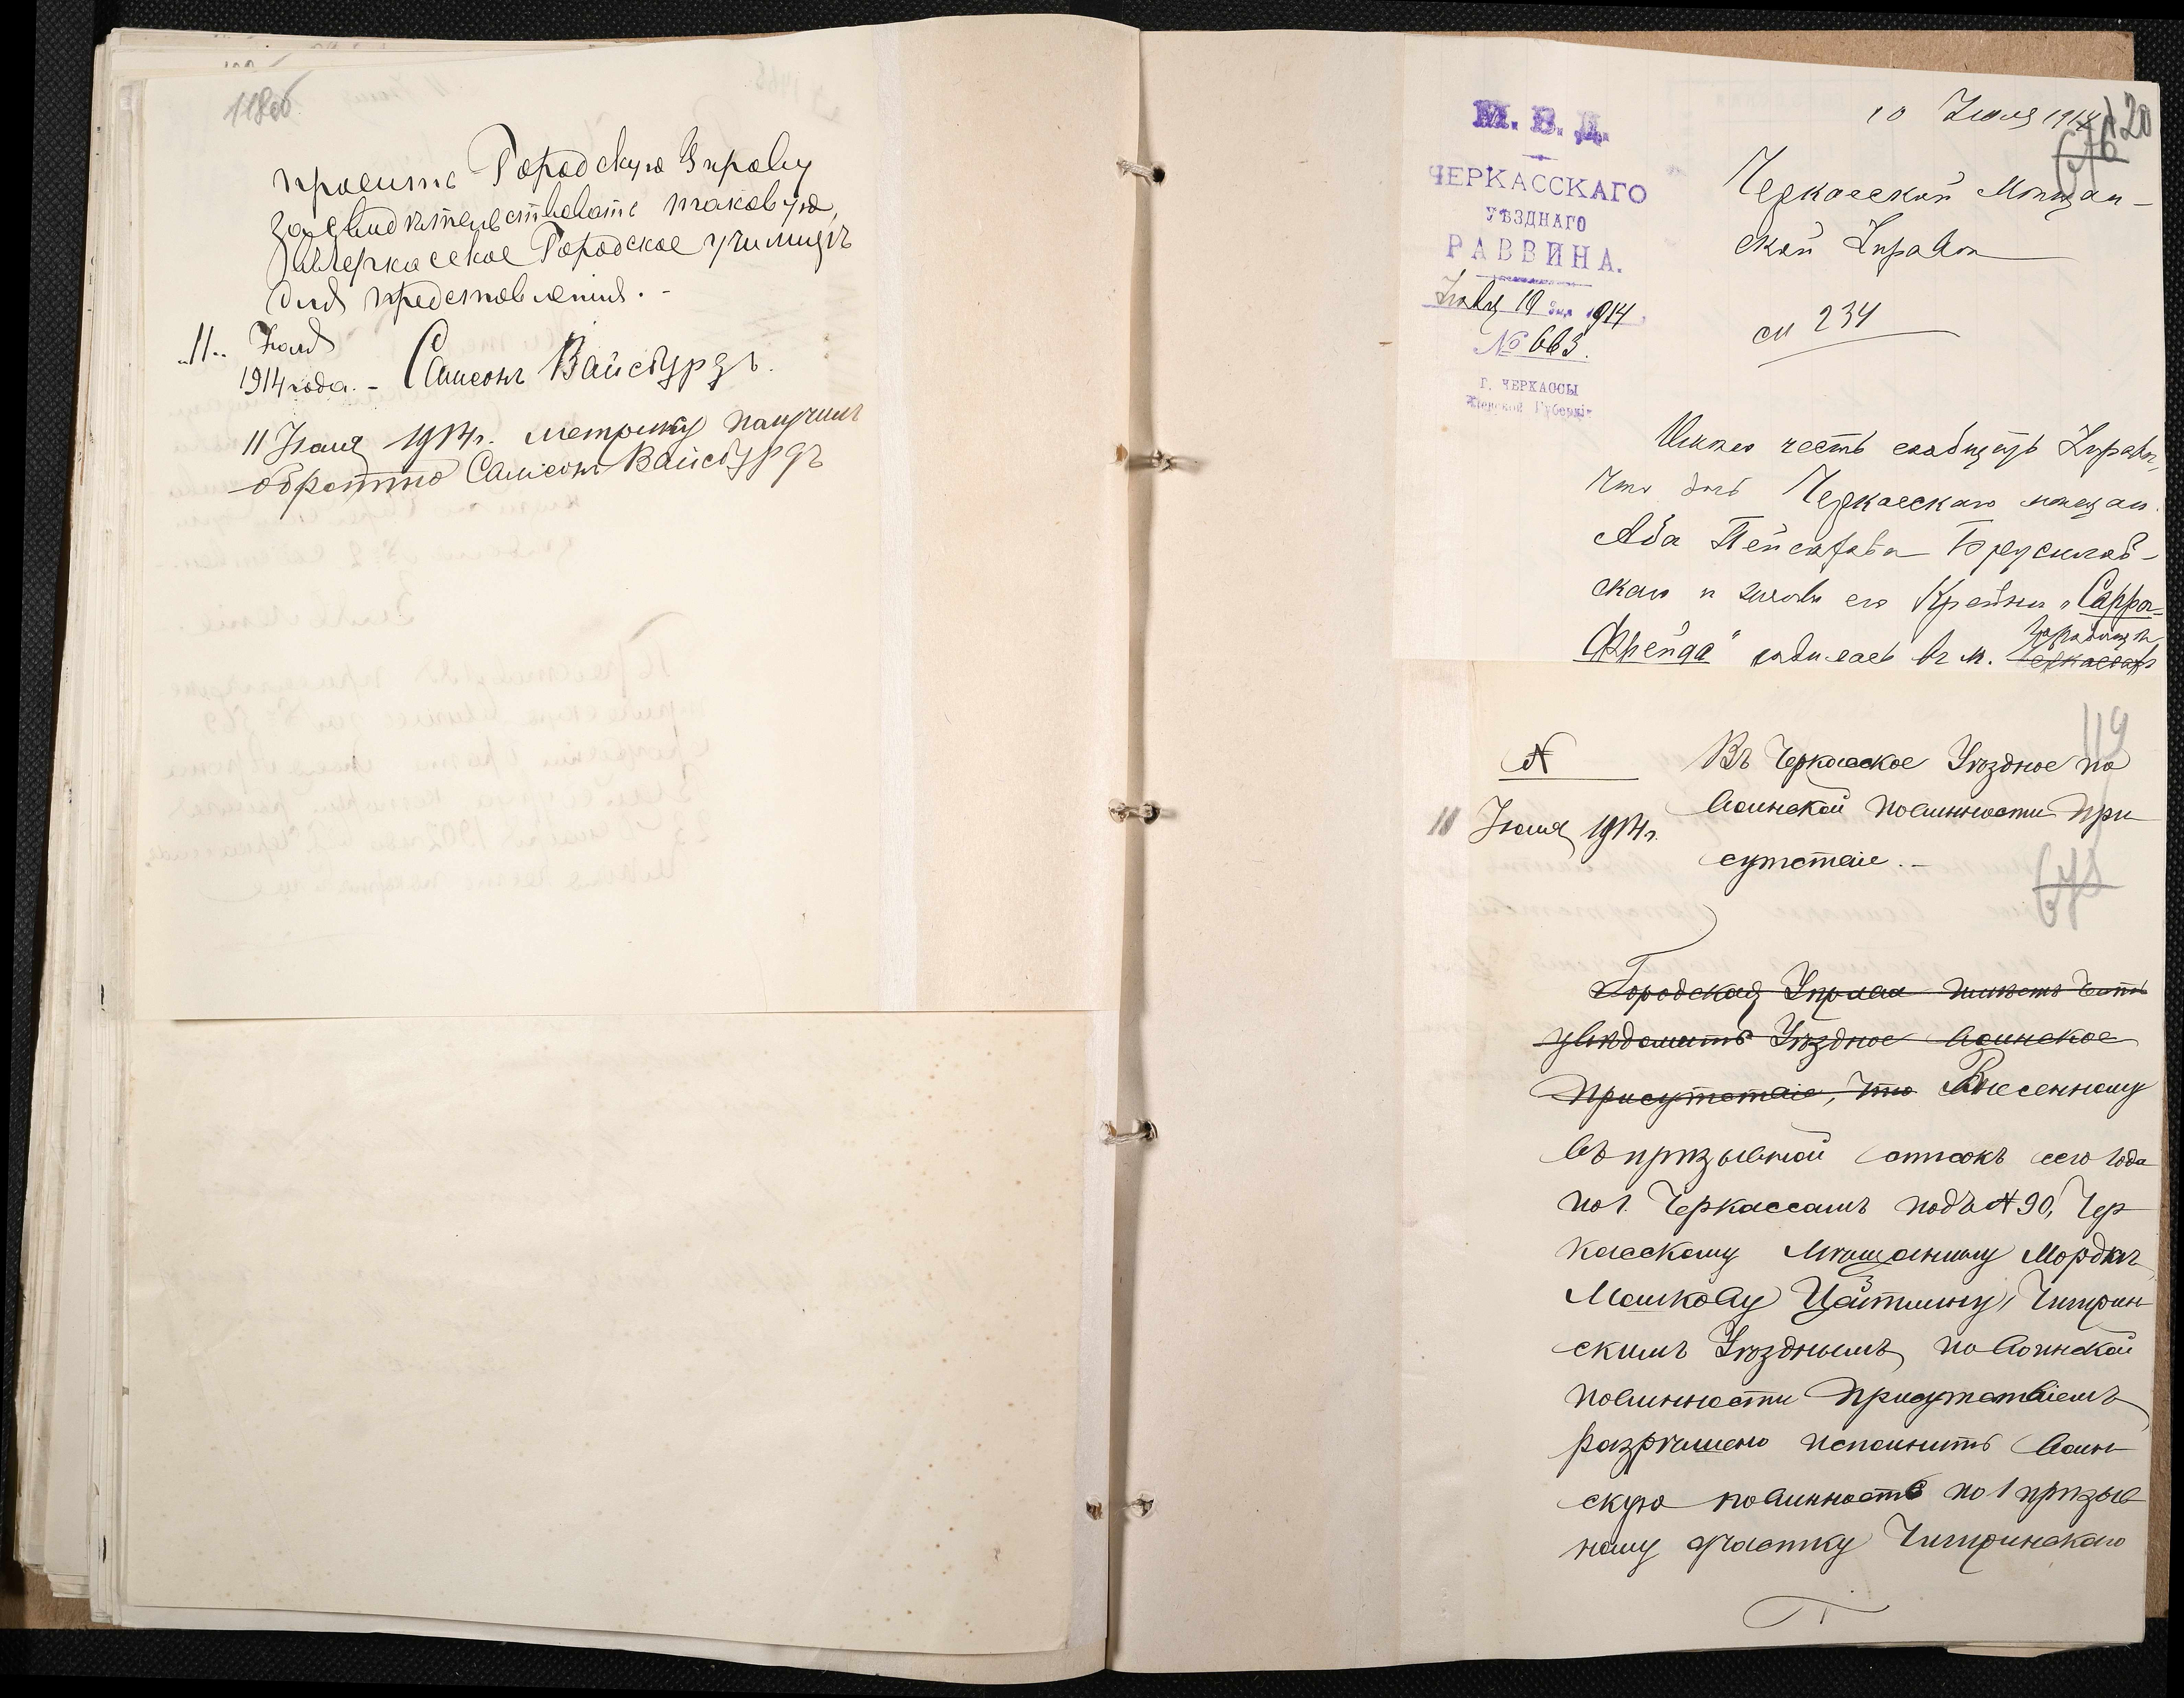 118об
просить Городскую Управу
засвидѣтельствовать таковую,
въ Черкасское Городское училищѣ
для представленія. -
"11" Іюля
1914 года. - Самсонъ Вайсбурдъ.
11 Іюля 1914 г. метрику получилъ
обратно Самсонъ Вайсбурдъ
М. В. Д.
ЧЕРКАССКАГО
УѢЗДНАГО
РАВВИНА.
Іюля 10 дня 1914
№ 663.
Г. ЧЕРКАССЫ
Кіевской Губерніи
10 Іюля 1914
120
Черкасской Мѣщан-
ской Управѣ
см 234
Имѣю честь сообщить Управѣ,
что дочь Черкасскаго мѣщан.
Аба Пейсахова Бруcилов-
скаго и жены его Крейны „Сарра-
Фрейда" родилась въ м.
Черкассахъ
119
№
Въ Черкасское Уѣздное по
воинской повинности При
сутствіе. -
11 Іюля 1914 г.
Городская Управа имѣетъ честь
увѣдомить Уѣздное Воинское
Присутствіе, что Внесенному
въ призывной списокъ сего года
по г. Черкассамъ подъ № 90, Чер
касскому Мѣщанину Мордкѣ
Мошкову Цейтлину, Чигрин
скимъ Уѣзднымъ по воинской
повинности Присутствіемъ
разрѣшено исполнить воин
скую повинность по 1 призыв
ному участку Чигринскаго